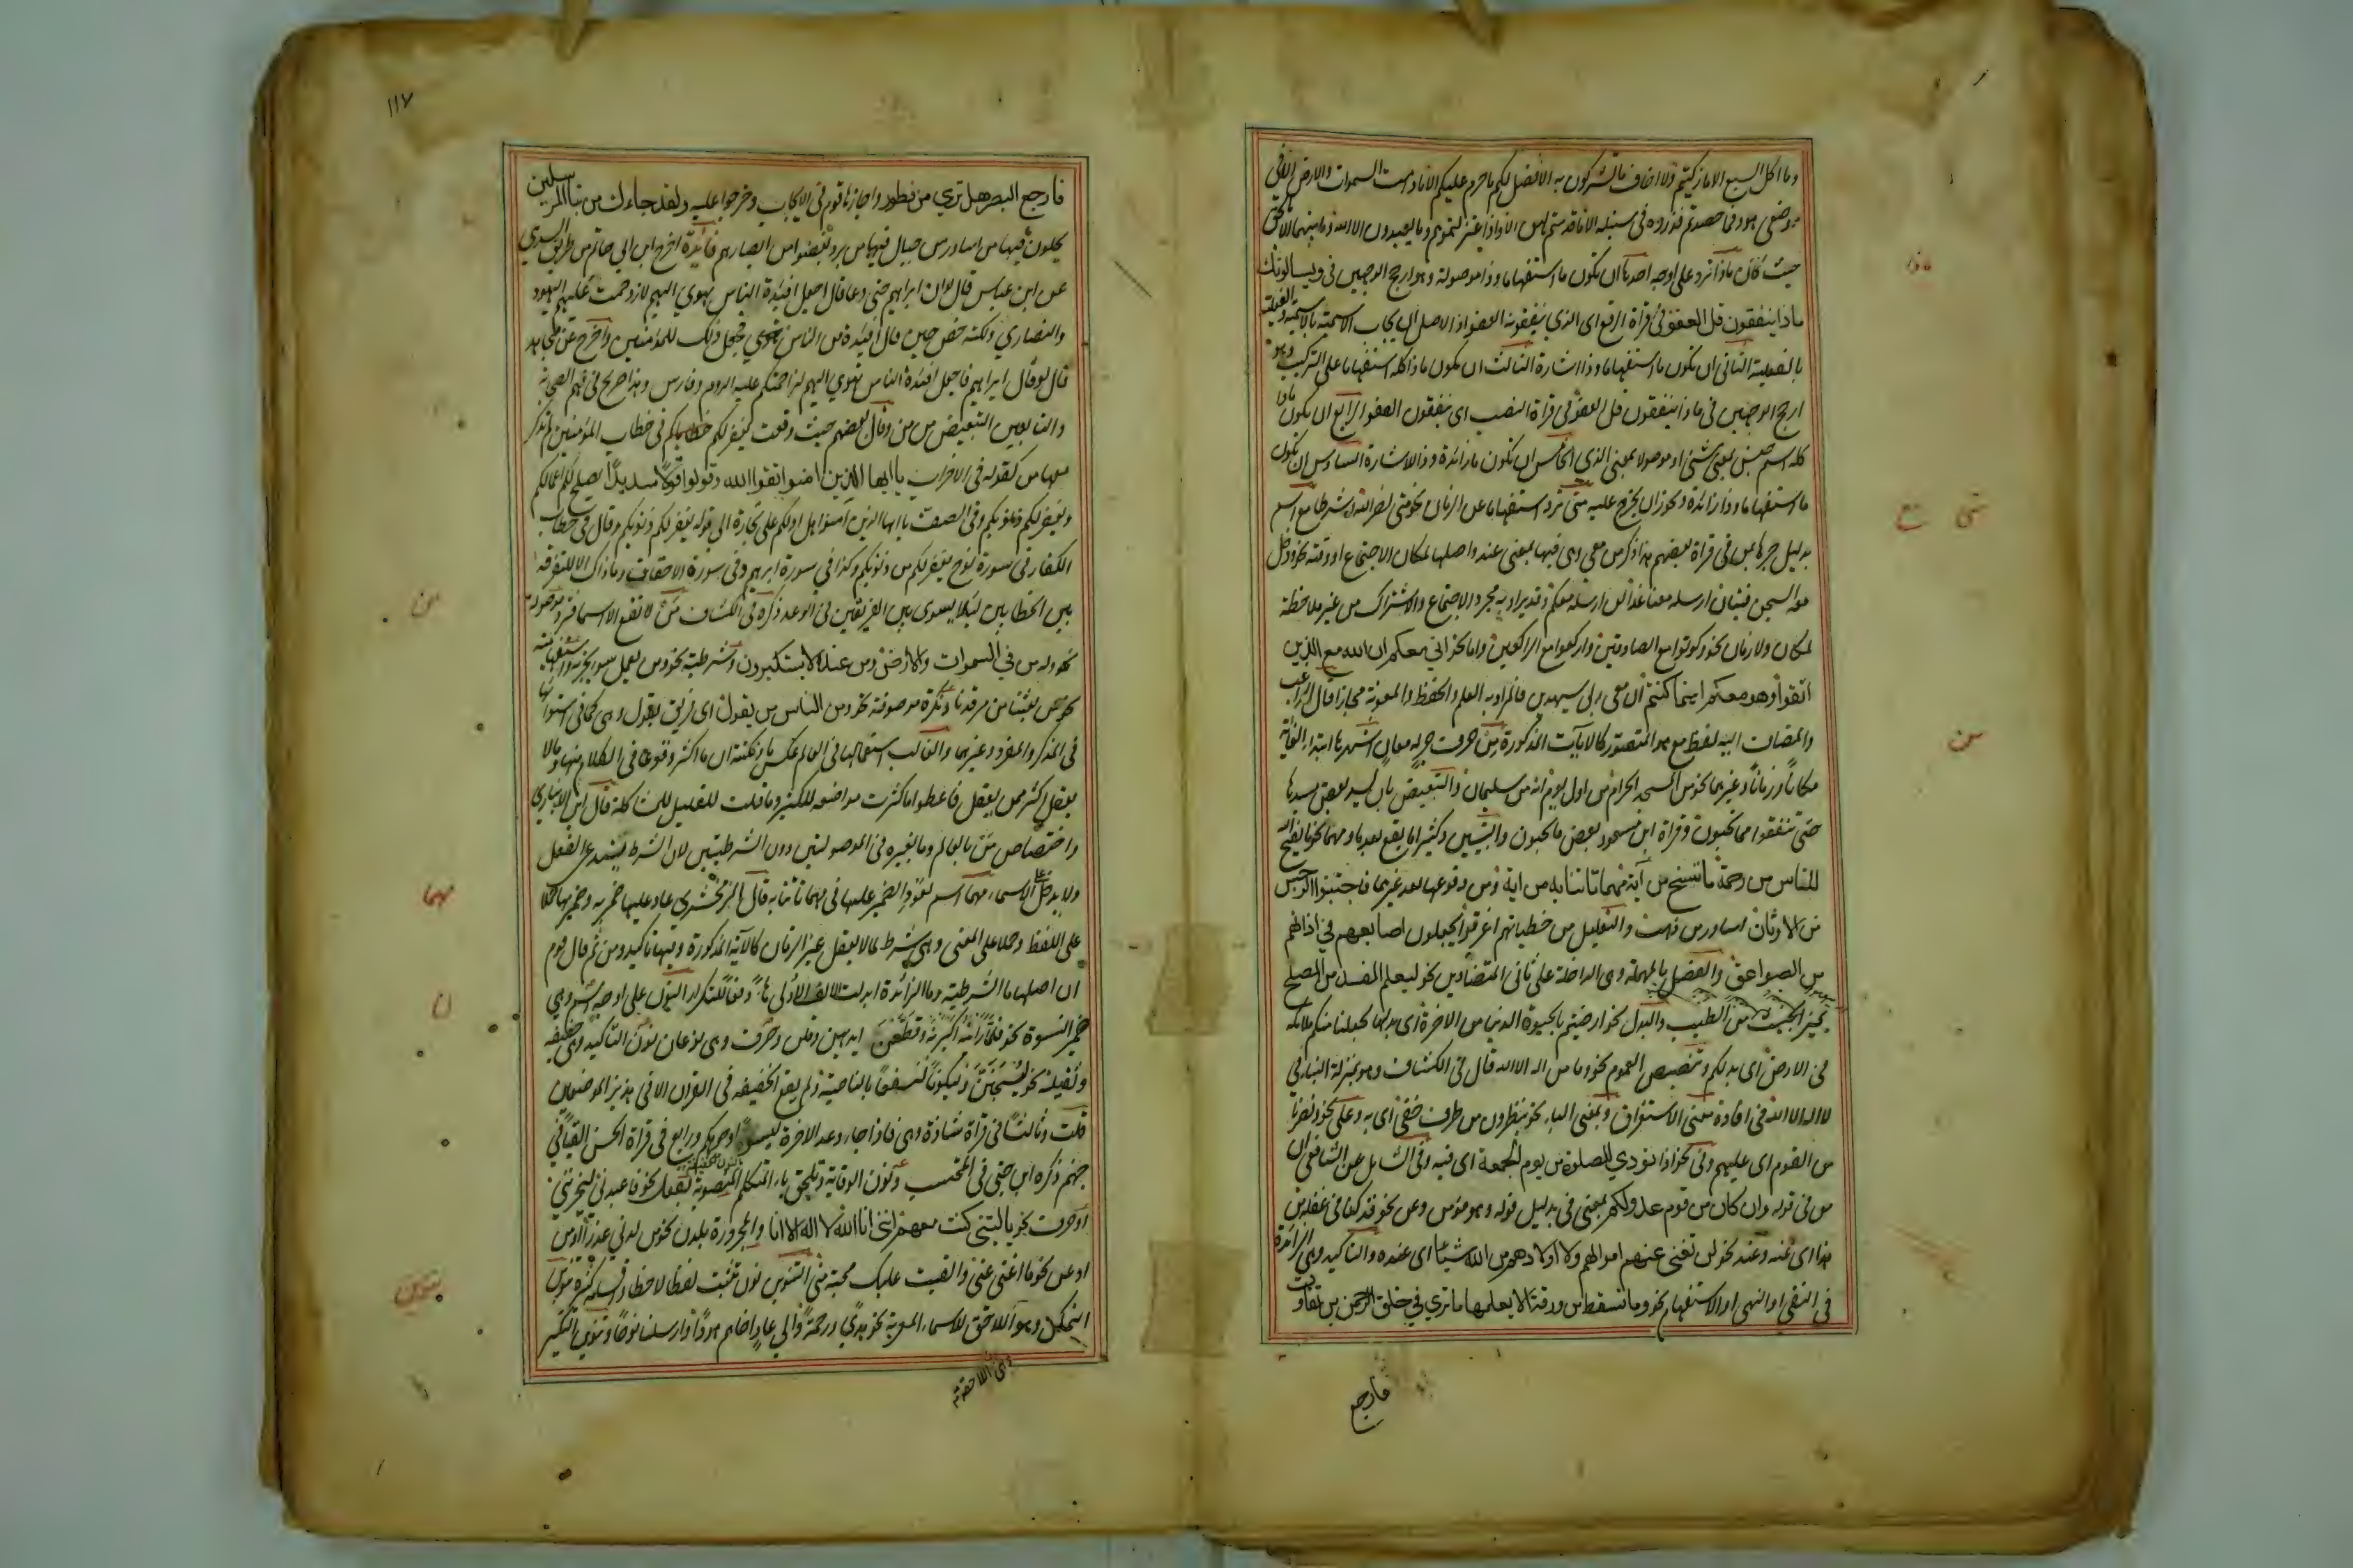 وما اكل السبع الا ما ذكيتم ولا اخاف ما تشركون به الا فصل لكم ما حرم عليكم الا ما دامت السموات والارض الا في
موضعي هود فما حصدتم فذروه في سنبله الا ما قدمتم لهن الا واذ اعتزلتموهم وما يعبدون الا الله وما بينهما الا بالحق
حيث كان ماذا ترد على اوجه احدها ان تكون ما استفهاما وذا موصولة وهو ارجح الوجهين في ويسالونك
ماذا ينفقون قل العفو في قراة الرفع اي الذي ينفقونه العفو اذ الاصل ان يجاب الاسمية بالاسمية والفعلية
بالفعلية الثاني ان تكون ما استفهاما وذا اشارة الثالث ان يكون ماذا كله استفهاما على التركيب وهو
ارجح الوجهين في ماذا ينفقون قل العفو في قراة النصب اي ينفقون العفو الرابع ان يكون ماذا
كله اسم جنس بمعنى شئ او موصولا بمعنى الذي الخامس ان تكون ما زائدة وذا للاشارة السادس ان تكون
ما استفهاما وذا زائدة ويجوز ان يخرج عليه متى ترد استفهاما عن الزمان نحو متى نصر الله وشرطا مع اسم
بدليل جرها بمن في قراة بعضهم هذا ذكر من معي وهي فيها بمعنى عند واصلها لمكان الاجتماع او وقته نحو ودخل
معه السجن فتيان ارسله معنا غدا لن ارسله معكم وقد يراد به مجرد الاجتماع والاشتراك من غير ملاحظة
لمكان ولا زمان نحو وكونوا مع الصادقين واركعوا مع الراكعين واما نحو اني معكم ان الله مع الذين
اتقوا وهو معكم اينما كنتم ان معي ربي سيهدين فالمراد به العلم والحفظ والمعونة مجازا قال الراغب
والمضاف اليه لفظ مع هو المنصور كالايات المذكورة من حرف جر له معان اشهرها ابتداء الغاية
مكانا وزمانا وغيرهما نحو من المسجد الحرام من اول يوم انه من سليمان والتبعيض بان يسد بعض مسدها
حتى تنفقوا مما تحبون وقراة ابن مسعود بعض ما تحبون والتبيين وكثيرا ما يقع بعد ما ومهما نحو ما يفتح الله
للناس من رحمة ما ننسخ من آية مهما تاتنا به من اية ومن وقوعها بعد غيرهما فاجتنبوا الرجس
من الاوثان اساور من ذهب والتعليل من خطيئاتهم اغرقوا يجعلون اصابعهم في اذانهم
من الصواعق والفصل بالمهملة وهي الداخلة على ثاني المتضادين نحو ليعلم المفسد من المصلح
يميز الخبيث من الطيب والبدل نحو ارضيتم بالحيوة الدنيا من الاخرة اي بدلها لجعلنا منكم ملائكة
في الارض اي بدلكم وتنصيص العموم نحو وما من اله الا الله قال في الكشاف وهو بمنزلة البناء في
لا اله الا الله في افادة معنى الاستغراق وبمعنى الباء نحو ينظرون من طرف خفي اي به وعلى نحو ونصرناه
من القوم اي عليهم وفي نحو اذا نودي للصلوة من يوم الجمعة اي فيه وفي الشامل عن الشافعي ان
من في قوله وان كان من قوم عدو لكم بمعنى في بدليل قوله وهو مؤمن وعن نحو قد كنا في غفلة من
هذا اي عنه وعند نحو لن تغني عنهم اموالهم ولا اولادهم من الله شيئا اي عنده والتاكيد وهي الزائدة
في النفي او النهي او الاستفهام نحو وما تسقط من ورقة الا يعلمها ما ترى في خلق الرحمن من تفاوت
فارجع
ماذا
متى مع
من
١١٧
فارجع البصر هل ترى من فطور واجازها قوم في الايجاب وخرجوا عليه ولقد جاءك من نبا المرسلين
يحلون فيها من اساور من جبال فيها من برد يغضوا من ابصارهم فائدة اخرج ابن ابي حاتم من طريق السدي
عن ابن عباس قال لو ان ابراهيم حين دعا قال اجعل افئدة الناس تهوي اليهم لازدحمت عليهم اليهود
والنصارى ولكنه خص حين قال افئدة من الناس تهوي فجعل ذلك للمؤمنين واخرج عن مجاهد
قال لو قال ابراهيم فاجعل افئدة الناس تهوي اليهم لزاحمتكم عليه الروم وفارس وهذا صريح في فهم الصحابة
والتابعين التبعيض من من وقال بعضهم حيث وقعت يغفر لكم خطاياكم في خطاب المؤمنين لم تذكر
معها من كقوله في الاحزاب يا ايها الذين امنوا اتقوا الله وقولوا قولا سديدا يصلح لكم اعمالكم
ويغفر لكم ذنوبكم وفي الصف يا ايها الذين آمنوا هل ادلكم على تجارة الى قوله يغفر لكم ذنوبكم وقال في خطاب
الكفار في سورة نوح يغفر لكم من ذنوبكم وكذا في سورة ابرهيم وفي سورة الاحقاف وما ذاك الا للتفرقة
بين الخطابين لئلا يسوى بين الفريقين في الوعد ذكره في الكشاف من لا تقع الا اسما فترد موصولة
نحو وله من في السموات والارض ومن عنده لا يستكبرون وشرطية نحو من يعمل سوءا يجز به واستفهامية
نحو من بعثنا من مرقدنا ونكرة موصوفة نحو ومن الناس من يقول اي فريق يقول وهي كما في استوائها
في المذكر والمفرد وغيرهما والغالب استعمالها في العالم عكس ما ونكتته ان ما اكثر وقوعا في الكلام منها وما لا
يعقل اكثر ممن يعقل فاعطوا ما كثرت مواضعه للكثير وما قلت للقليل للمشاكلة قال ابن الانباري
واختصاص من بالعالم وما بغيره في الموصولتين دون الشرطيتين لان الشرط يستدعي الفعل
ولا يدخل على الاسماء مهما اسم لعود الضمير عليها في مهما تاتنا به قال الزمخشري عاد عليها ضمير به وضمير بها حملا
على اللفظ وحملا على المعنى وهي شرط لما لا يعقل غير الزمان كالآية المذكورة وفيها تاكيد ومن ثم قال قوم
ان اصلها ما الشرطية وما الزائدة ابدلت الالف الاولى هاء دفعا للتكرار النون على اوجه اسم وهي
ضمير النسوة نحو فلما راينه اكبرنه وقطعن ايديهن وقلن وحرف وهي نوعان نون التاكيد وهي خفيفة
وثقيلة نحو ليسجنن وليكونا لنسفعا بالناصية ولم يقع الخفيفة في القران الا في هذين الموضعين
قلت وثالث في قراة شاذة وهي فاذا جاء وعد الاخرة ليسوءا وجوهكم ورابع في قراة الحسن القيا في
جهنم ذكره ابن جني في المحتسب ونون الوقاية وتلحق ياء المتكلم المنصوبة بفعل نحو فاعبدني ليحزنني
او حرف نحو يا ليتني كنت معهم انني انا الله لا اله الا انا والمجرورة بلدن نحو من لدني عذرا او من
او عن نحو ما اغنى عني والقيت عليك محبة مني التنوين نون تثبت لفظا لا خطا واقسامه كثيرة تنوين
التمكين وهو اللاحق للاسماء المعربة نحو هدى ورحمة والى عاد اخاهم هودا وارسلنا نوحا وتنوين التنكير
وهو اللاحق
من
مهما
ن
تنوين